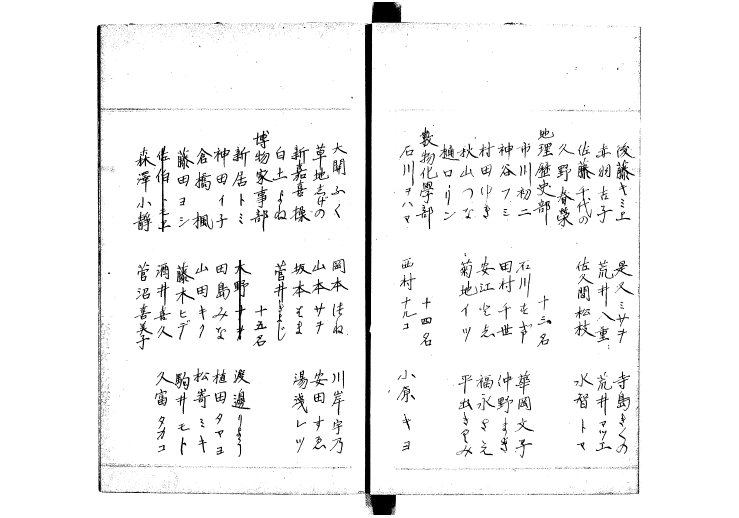 後藤キミエ 是久ミサヲ 寺島きくの
赤羽古子 荒井八重 荒井マツエ
佐藤千代の 佐久間松枝 水智トマ
久野春榮
地理歴史部 十三名
市川初二 石川 華岡文子
神谷フミ 田村千世 仲野まき
村田ゆき 安江とし 福永とくえ
秋山つな 菊地イツ 平出きくみ
樋口リン
数物化學部 十四名
石川ヲハマ 西村ナルコ 小原キヨ
大関ふく 岡本はね 川岸宇乃
草地志げの 山本サヲ 安田すゑ
新嘉喜操 坂本もま 湯浅レツ
白土よね 菅井
博物家事部 十五名
新居トミ 大野ナオ 渡邉りよう
神田イ子 田島みな 植田タマヨ
倉橋楓 山田キク 松嵜ミキ
藤田ヨシ 藤木ヒデ 駒井モト
佐伯トモエ 酒井喜久 久富タカコ
森澤小静 菅沼喜美子